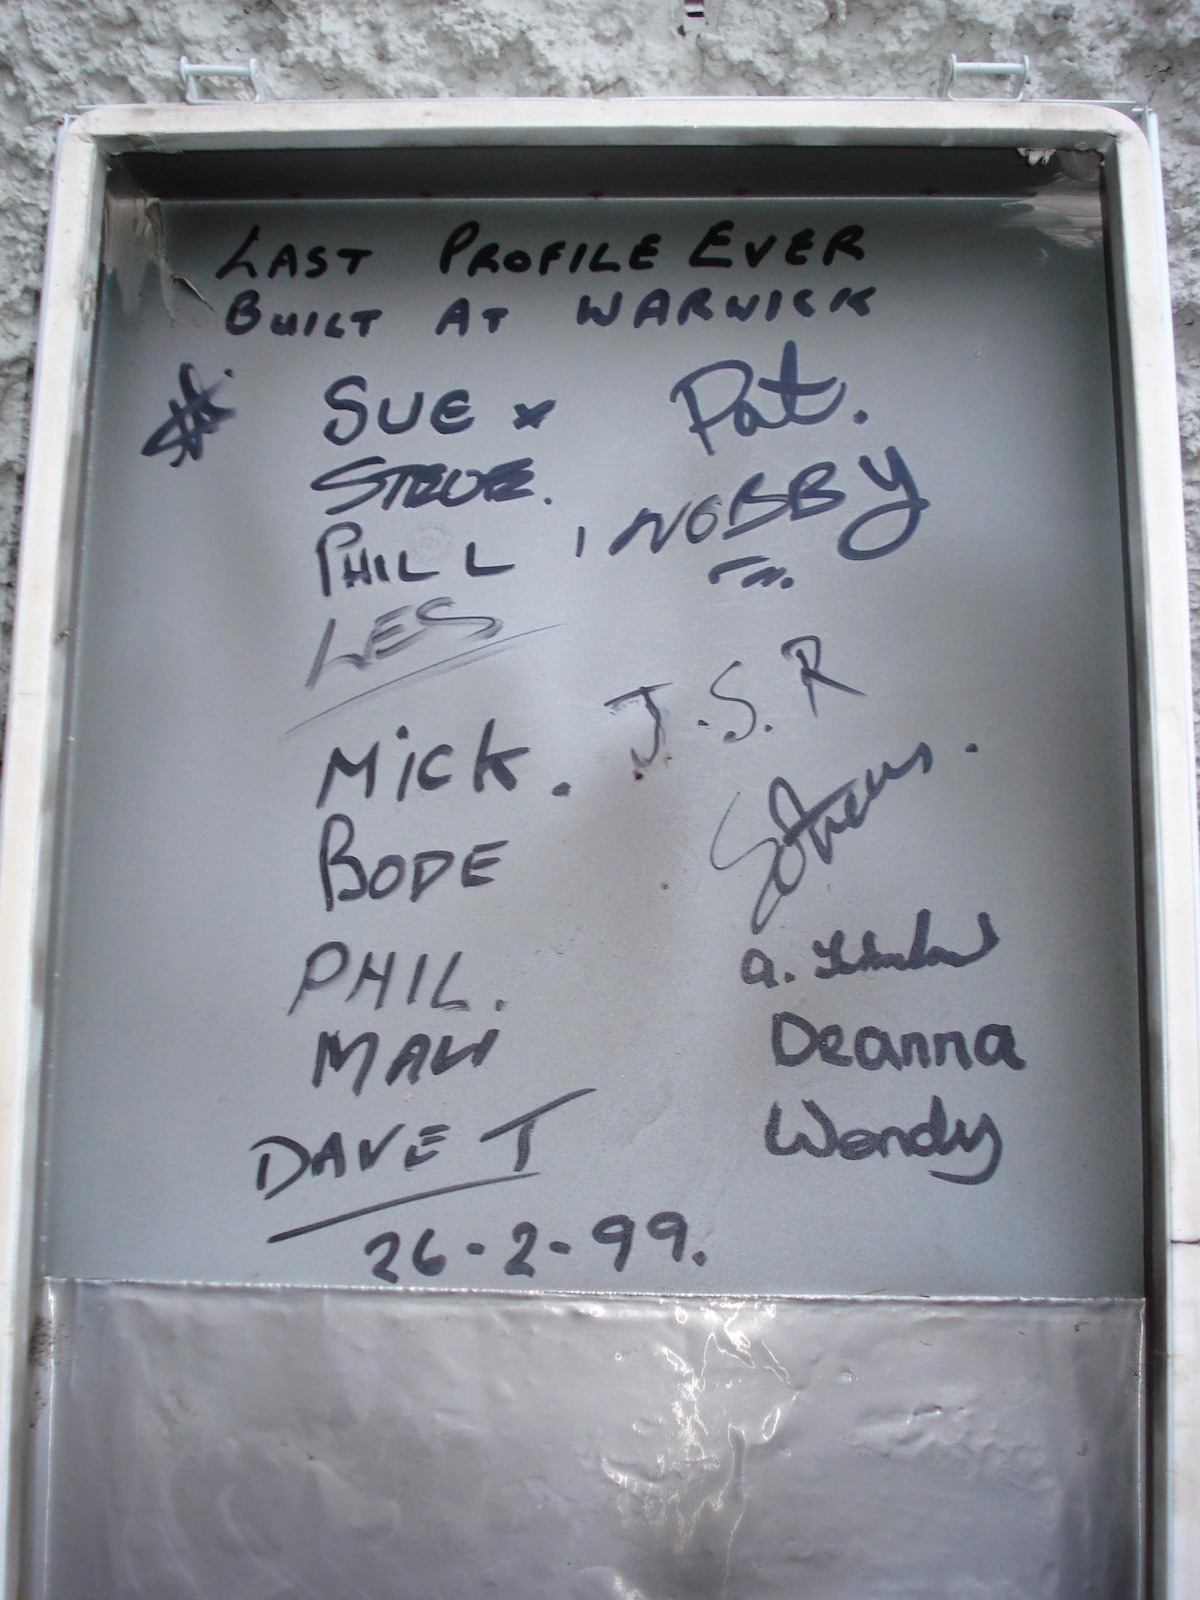 LAST PROFILE EVER
BUILT AT WARWICK
SUE x Pat.
STEVE.
PHILL , NOBBY
LES
J.S.R
MICK.
BODE
PHIL.
a.
MAW Deanna
DAVE T Wendy
26-2-99.